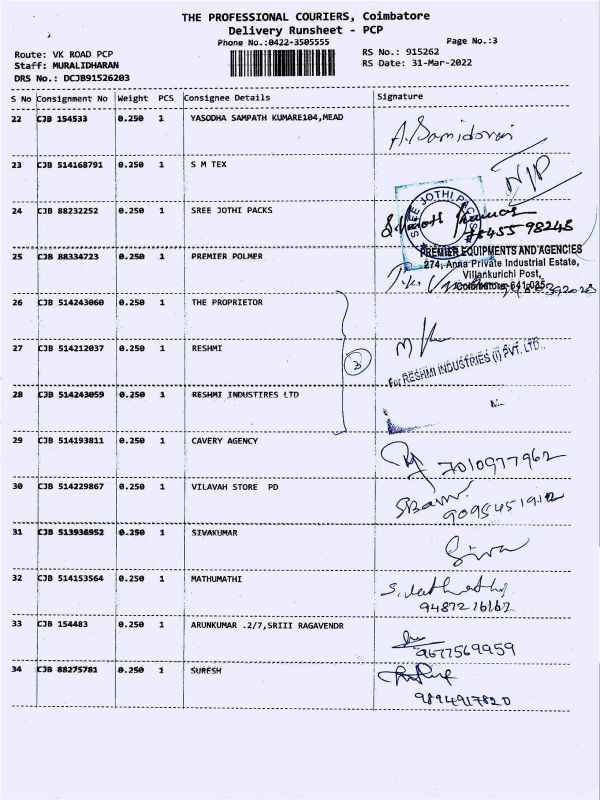 THE PROFESSIONAL COURIERS, Coimbatore
Delivery Runsheet - PCP
Phone No.:0422-3505555
Page No.:3
Route: VK ROAD PCP
RS No.: 915262
Staff: MURALIDHARAN
RS Date: 31-Mar-2022
DRS No.: DCJB91526203
S No Consignment No Weight PCS Consignee Details Signature
22 CJB 154533 0.250 1 YASODHA SAMPATH KUMARE104,MEAD
23 CJB 514168791 0.250 1 S M TEX N/P
24 CJB 88232252 0.250 1 SREE JOTHI PACKS
SREE JOTHI PACKS
98245
25 CJB 88334723 0.250 1 PREMIER POLMER
PREMIER EQUIPMENTS AND AGENCIES
274, Anna Private Industrial Estate,
Villankurichi Post,
Coimbatore-641 035
26 CJB 514243060 0.250 1 THE PROPRIETOR
27 CJB 514212037 0.250 1 RESHMI
3
For RESHMI INDUSTRIES (I) PVT. LTD.,
28 CJB 514243059 0.250 1 RESHMI INDUSTIRES LTD
29 CJB 514193811 0.250 1 CAVERY AGENCY
7010977962
30 CJB 514229867 0.250 1 VILAVAH STORE PD
31 CJB 513936952 0.250 1 SIVAKUMAR
Siva
32 CJB 514153564 0.250 1 MATHUMATHI
9487216162
33 CJB 154483 0.250 1 ARUNKUMAR .2/7,SRIII RAGAVENDR
9677569959
34 CJB 88275781 0.250 1 SURESH
9894917820